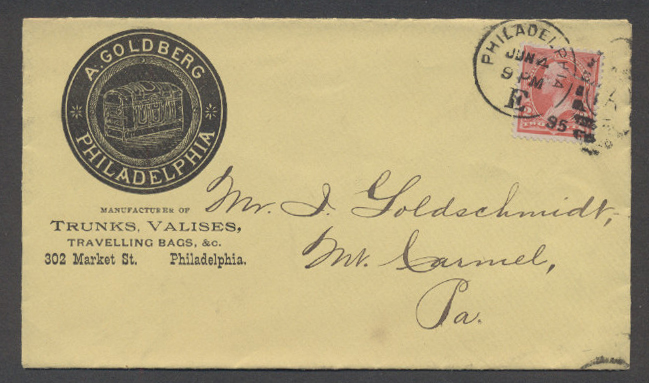 A. GOLDBERG
PHILADELPHIA
MANUFACTURER OF
TRUNKS, VALISES,
TRAVELLING BAGS, &c.
302 Market St. Philadelphia.
PHILADELPHIA
JUN 4
9 PM
E
95
Mr. I. Goldschmidt,
Mt. Carmel,
Pa.